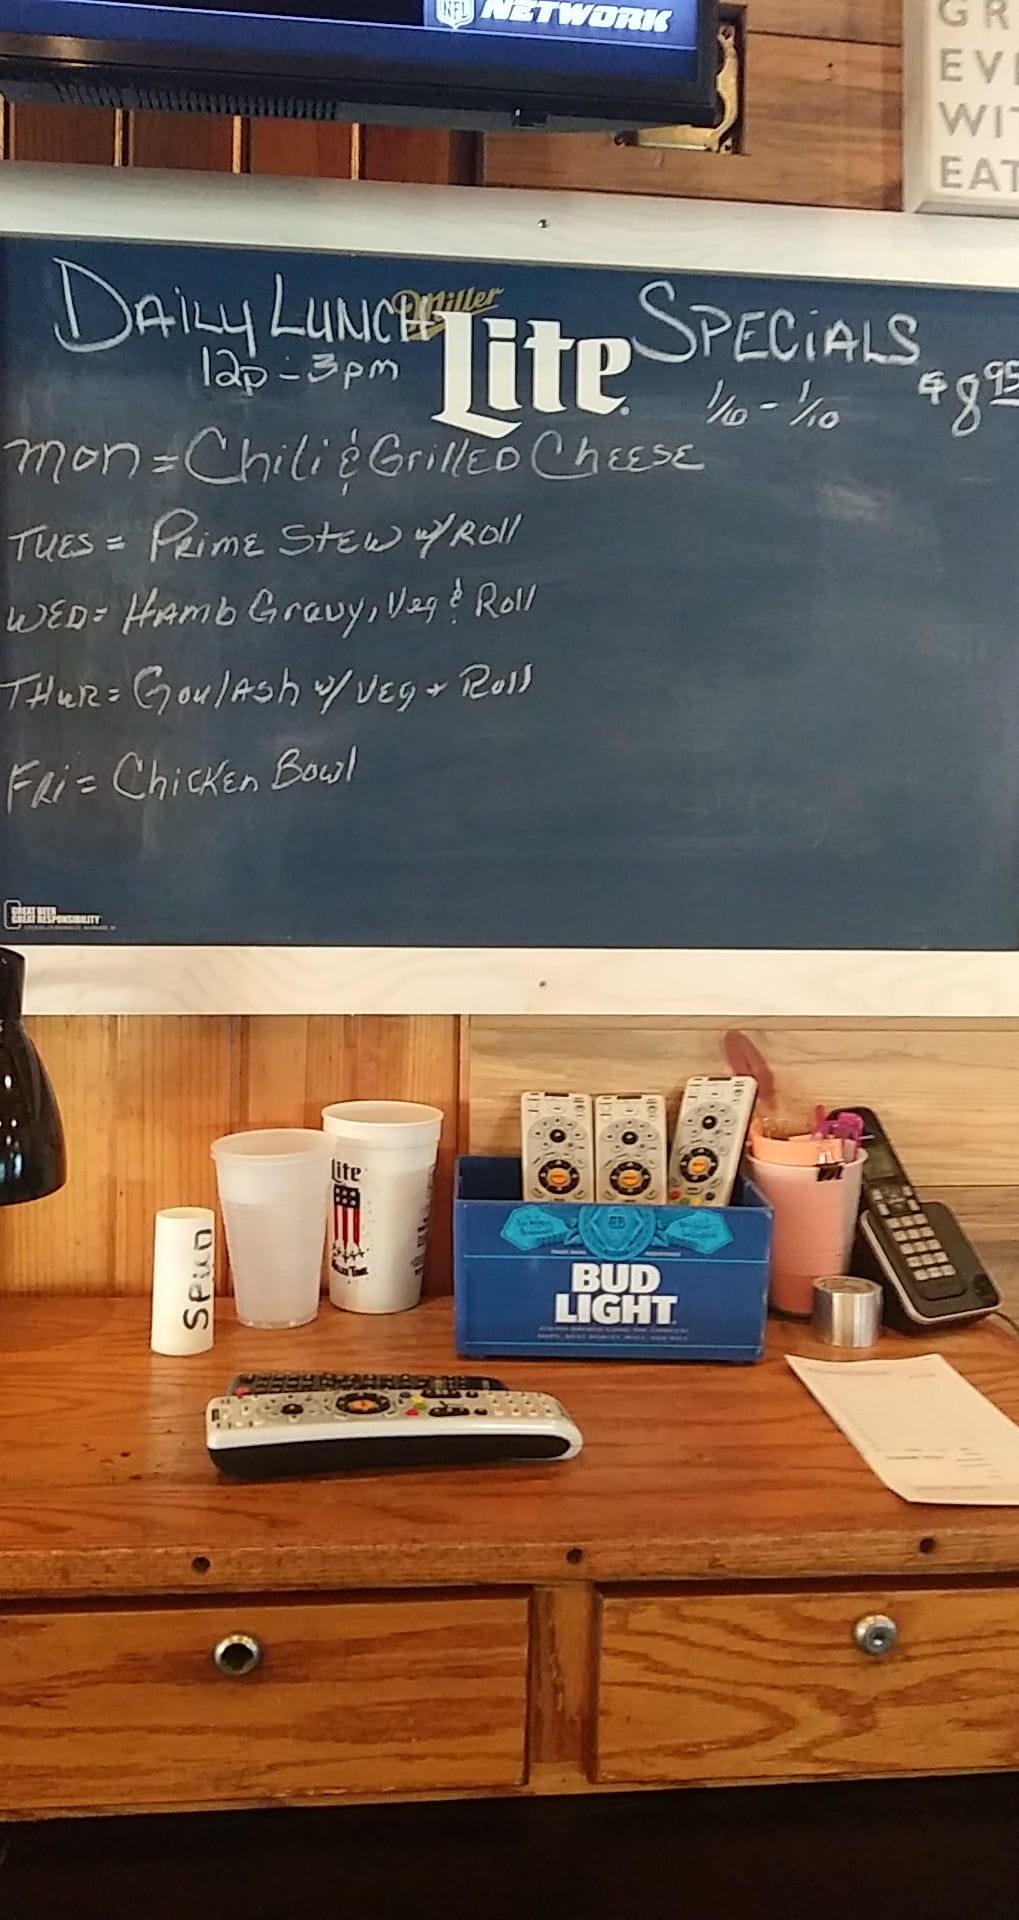 NFL NETWORK
GR
EVE
WIT
EAT
DAiLY LUNCH Miller Lite SPECiALS
12p - 3pm 1/6 - 1/10 $8.95
Mon = Chili & GrillED CHEESE
TUES = PRiME STEW w/ ROll
WED = HAmb Gravy, Veg & Roll
THUR = GoulAsh w/ VEg + Roll
FRi = ChicKEn Bowl
GREAT BEER
GREAT RESPONSIBILITY
Lite
MILLER TIME
SPiKD
BUD
LIGHT